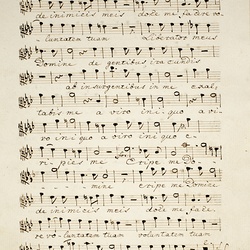 de inimicis meis doce me facere vo-
luntatem tuam Liberator meus
Domine de gentibus ira cundis
ab insurgentibus in me exal-
tabis me a viro ini- quo a vi-
ro ini quo a viro ini quo e-
ripies me Eripe me Do-
mine eripe me Domine
de inimicis meis doce me fa-
re voluntatem tuam voluntatem tuam